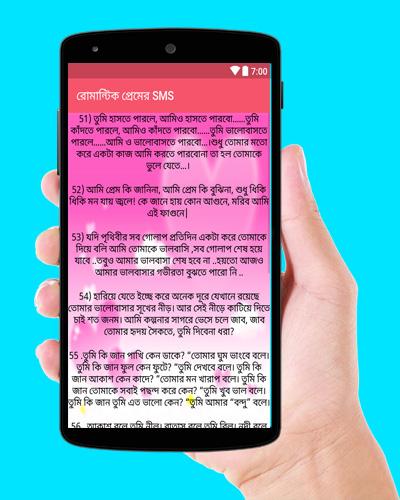 7:00
রোমান্টিক প্রেমের SMS
51) তুমি হাসতে পারলে, আমিও হাসতে পারবো......তুমি
কাঁদতে পারলে, আমিও কাঁদতে পারবো......তুমি ভালোবাসতে
পারলে......আমি ও ভালোবাসতে পারবো...।শুধু তোমার মতো
করে একটা কাজ আমি করতে পারবোনা তা হল তোমাকে
ভুলে যেতে...।
52) আমি প্রেম কি জানিনা, আমি প্রেম কি বুঝিনা, শুধু ধিকি
ধিকি মন যায় জ্বলে! কে জানে হায় কোন আগুনে, মরিব আমি
এই ফাগুনে|
53) যদি পৃথিবীর সব গোলাপ প্রতিদিন একটা করে তোমাকে
দিয়ে বলি আমি তোমাকে ভালবাসি ,সব গোলাপ শেষ হয়ে
যাবে ..তবুও আমার ভালবাসা শেষ হবে না ..হয়তো আজও
আমার ভালবাসার গভীরতা বুঝতে পারো নি ..
54) হারিয়ে যেতে ইচ্ছে করে অনেক দূরে যেখানে রয়েছে
তোমার ভালোবাসার সূখের নীড়। আর সেই নীড়ে কাটিয়ে দিতে
চাই শত জনম। আমি কল্পনার সাগরে ভেসে চলে জাব, জাব
তোমার হৃদয় সৈকতে, তুমি দিবেনা ধরা?
55 .তুমি কি জান পাখি কেন ডাকে? “তোমার ঘুম ভাংবে বলে।
তুমি কি জান ফুল কেন ফুটে? “তুমি দেখবে বলে। তুমি কি
জান আকাশ কেন কাদে? “তোমার মন খারাপ বলে। তুমি কি
জান তোমাকে সবাই পছন্দ করে কেন? “তুমি খুব ভাল বলে।
তুমি কি জান তুমি এত ভালো কেন? “তুমি আমার “বন্দু” বলে।
56 .আকাশ বলে তুমি নীল। বাতাস বলে তুমি বিল। নদী বলে